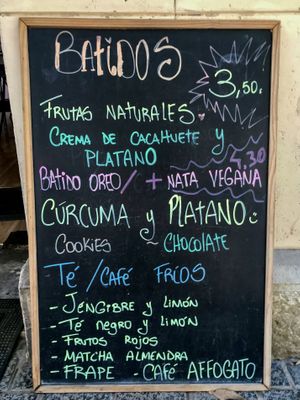 BATIDOS
3,50.
FRUTAS NATURALES.
CREMA DE CACAHUETE y
PLATANO
4.30
BATIDO OREO / + NATA VEGANA
CÚRCUMA y PLATANO
COOKIES ~ CHOCOLATE
TÉ / CAFÉ FRIOS
- JENGIBRE y LIMÓN
- TÉ NEGRO y LIMÓN
- FRUTOS ROJOS
- MATCHA ALMENDRA
- FRAPE - CAFÉ AFFOGATO